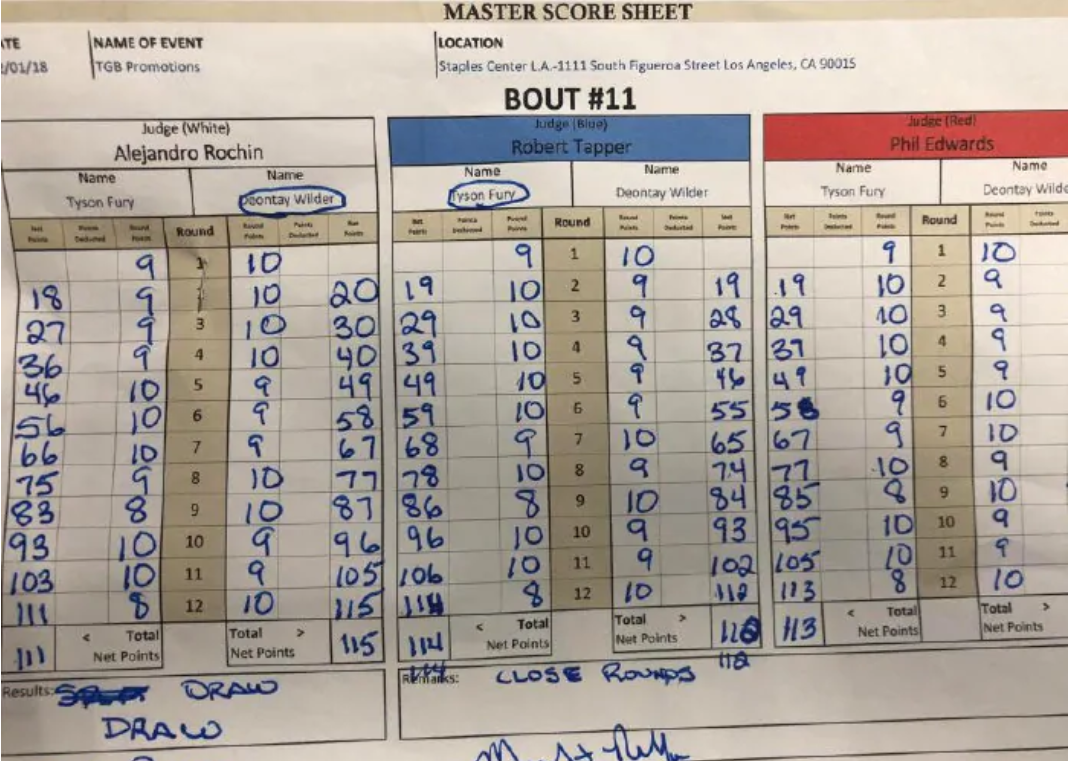 MASTER SCORE SHEET
TE NAME OF EVENT LOCATION
/01/18 TGB Promotions Staples Center L.A.-1111 South Figueroa Street Los Angeles, CA 90015
BOUT #11
Judge (White) Judge (Blue) Judge (Red)
Alejandro Rochin Robert Tapper Phil Edwards
Name Name Name Name Name Name
Tyson Fury Deontay Wilder Tyson Fury Deontay Wilder Tyson Fury Deontay Wilde
Net Points Points Deducted Round Points Round Round Points Points Deducted Net Points Net Points Points Deducted Round Points Round Round Points Points Deducted Net Points Net Points Points Deducted Round Points Round Round Points Points Deducted
9 1 10 9 1 10 9 1 10
18 9 10 20 19 10 2 9 19 19 10 2 9
27 9 3 10 30 29 10 3 9 28 29 10 3 9
36 9 4 10 40 39 10 4 9 37 39 10 4 9
46 10 5 9 49 49 10 5 9 46 49 10 5 9
56 10 6 9 58 59 10 6 9 55 58 9 6 10
66 10 7 9 67 68 9 7 10 65 67 9 7 10
75 9 8 10 77 78 10 8 9 74 77 10 8 9
83 8 9 10 87 86 8 9 10 84 85 8 9 10
93 10 10 9 96 96 10 10 9 93 95 10 10 9
103 10 11 9 105 106 10 11 9 102 105 10 11 9
111 8 12 10 115 114 8 12 10 112 113 8 12 10
111 < Total Net Points Total > Net Points 115 114 < Total Net Points Total > Net Points 112 113 < Total Net Points Total > Net Points
114 112
Results: DRAW Remarks: CLOSE ROUNDS
DRAW